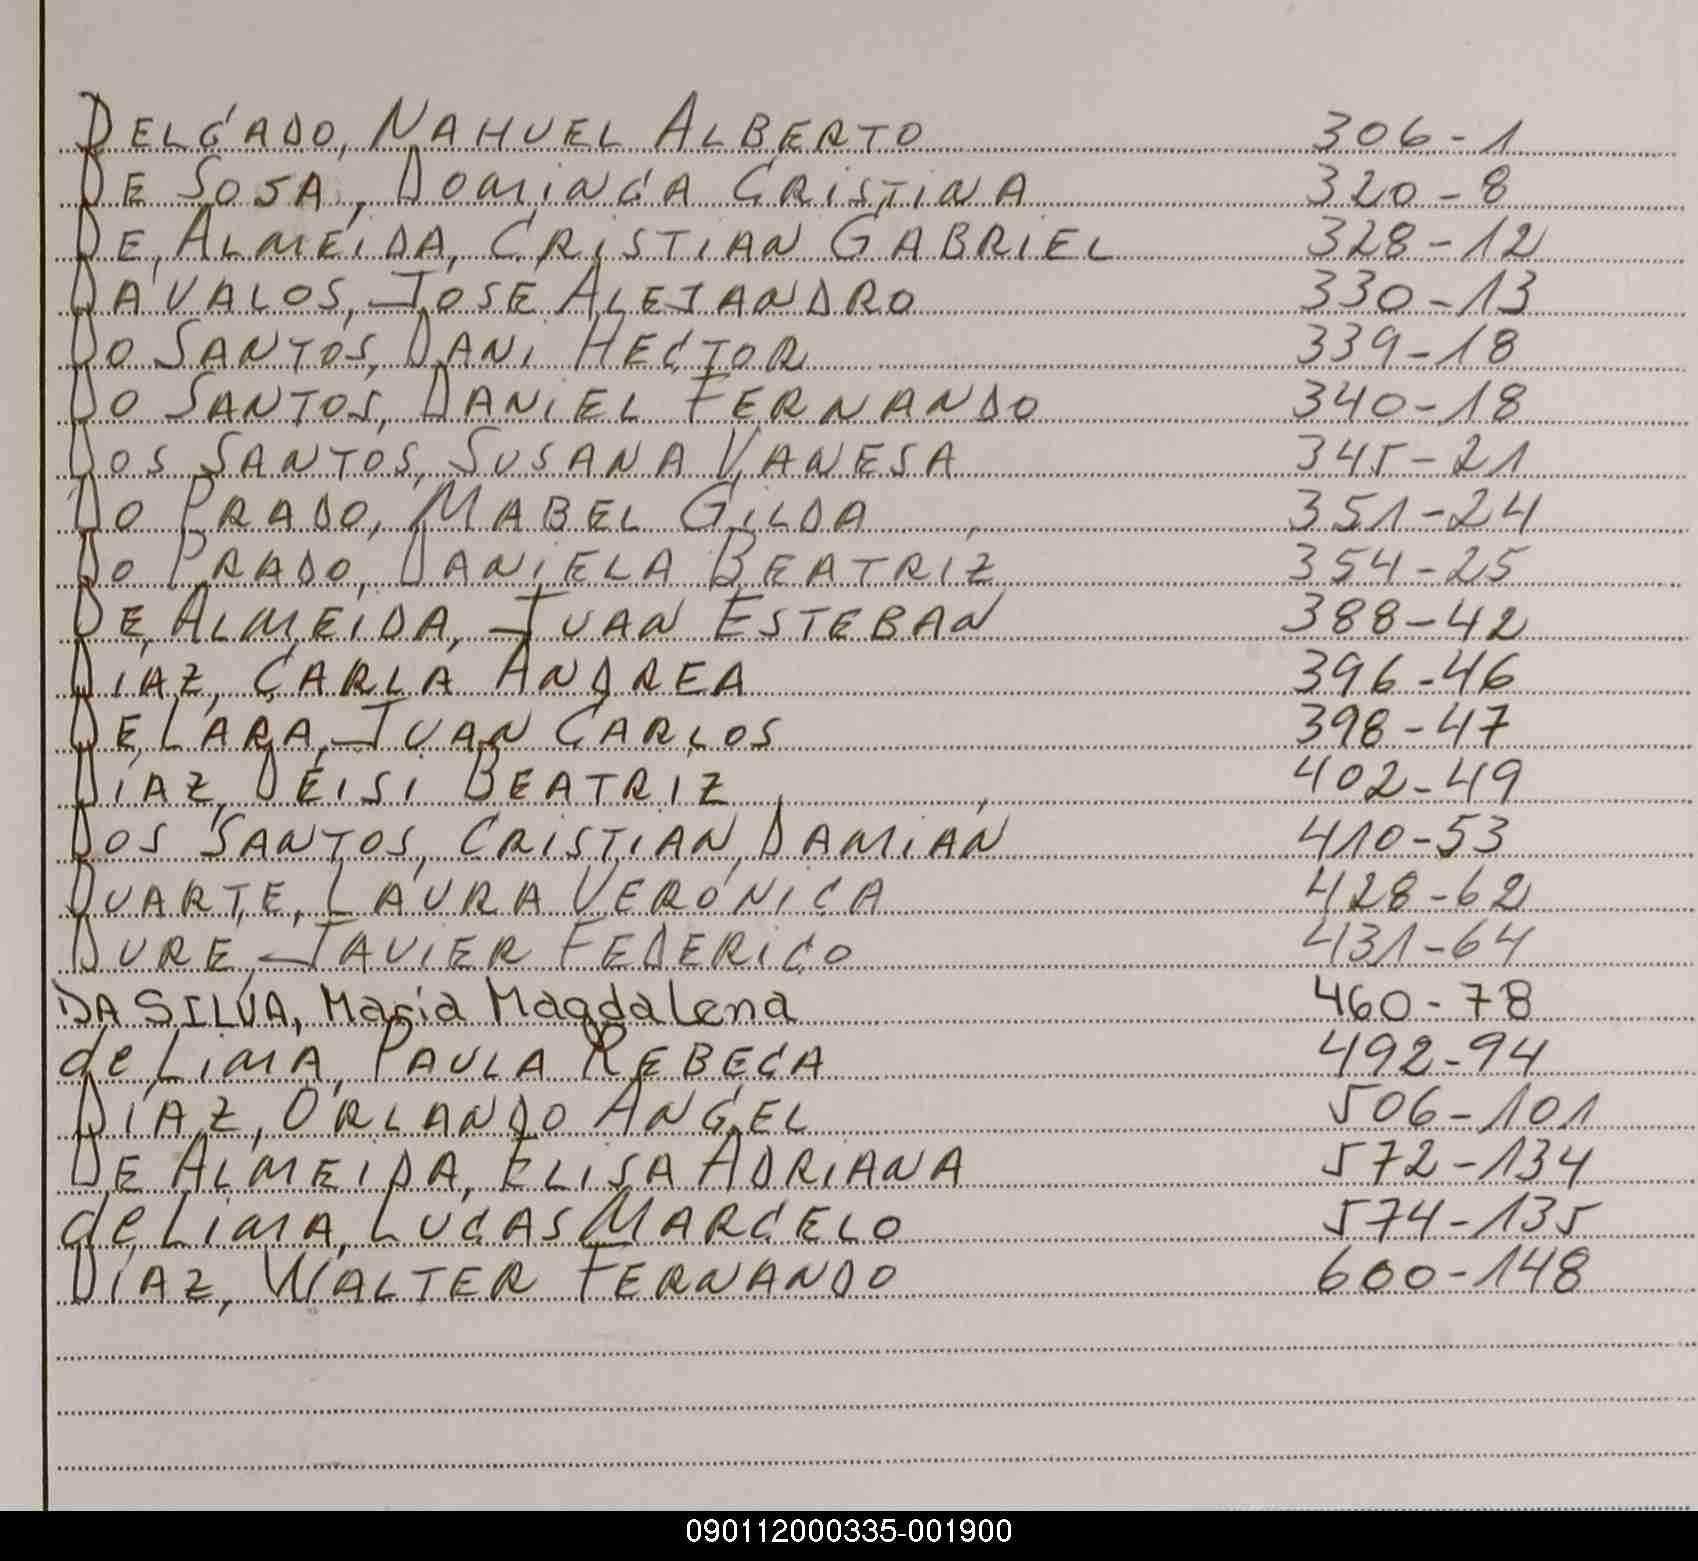 DELGADO, NAHUEL ALBERTO 306-1
DE SOSA, DOMINGA CRISTINA 320-8
DE ALMEIDA, CRISTIAN GABRIEL 328-12
DAVALOS, JOSE ALEJANDRO 330-13
DO SANTOS, DANI HECTOR 339-18
DO SANTOS, DANIEL FERNANDO 340-18
DOS SANTOS, SUSANA VANESA 345-21
DO PRADO, MABEL GILDA 351-24
DO PRADO, DANIELA BEATRIZ 354-25
DE ALMEIDA, JUAN ESTEBAN 388-42
DIAZ, CARLA ANDREA 396-46
DE LARA, JUAN CARLOS 398-47
DIAZ, DEISI BEATRIZ 402-49
DOS SANTOS, CRISTIAN DAMIAN 410-53
DUARTE, LAURA VERONICA 428-62
DURE, JAVIER FEDERICO 431-64
DA SILVA, Maria Magdalena 460-78
de LIMA, PAULA REBECA 492-94
DIAZ, ORLANDO ANGEL 506-101
DE ALMEIDA, ELISA ADRIANA 572-134
de LIMA, LUCAS MARCELO 574-135
DIAZ, WALTER FERNANDO 600-148
090112000335-001900